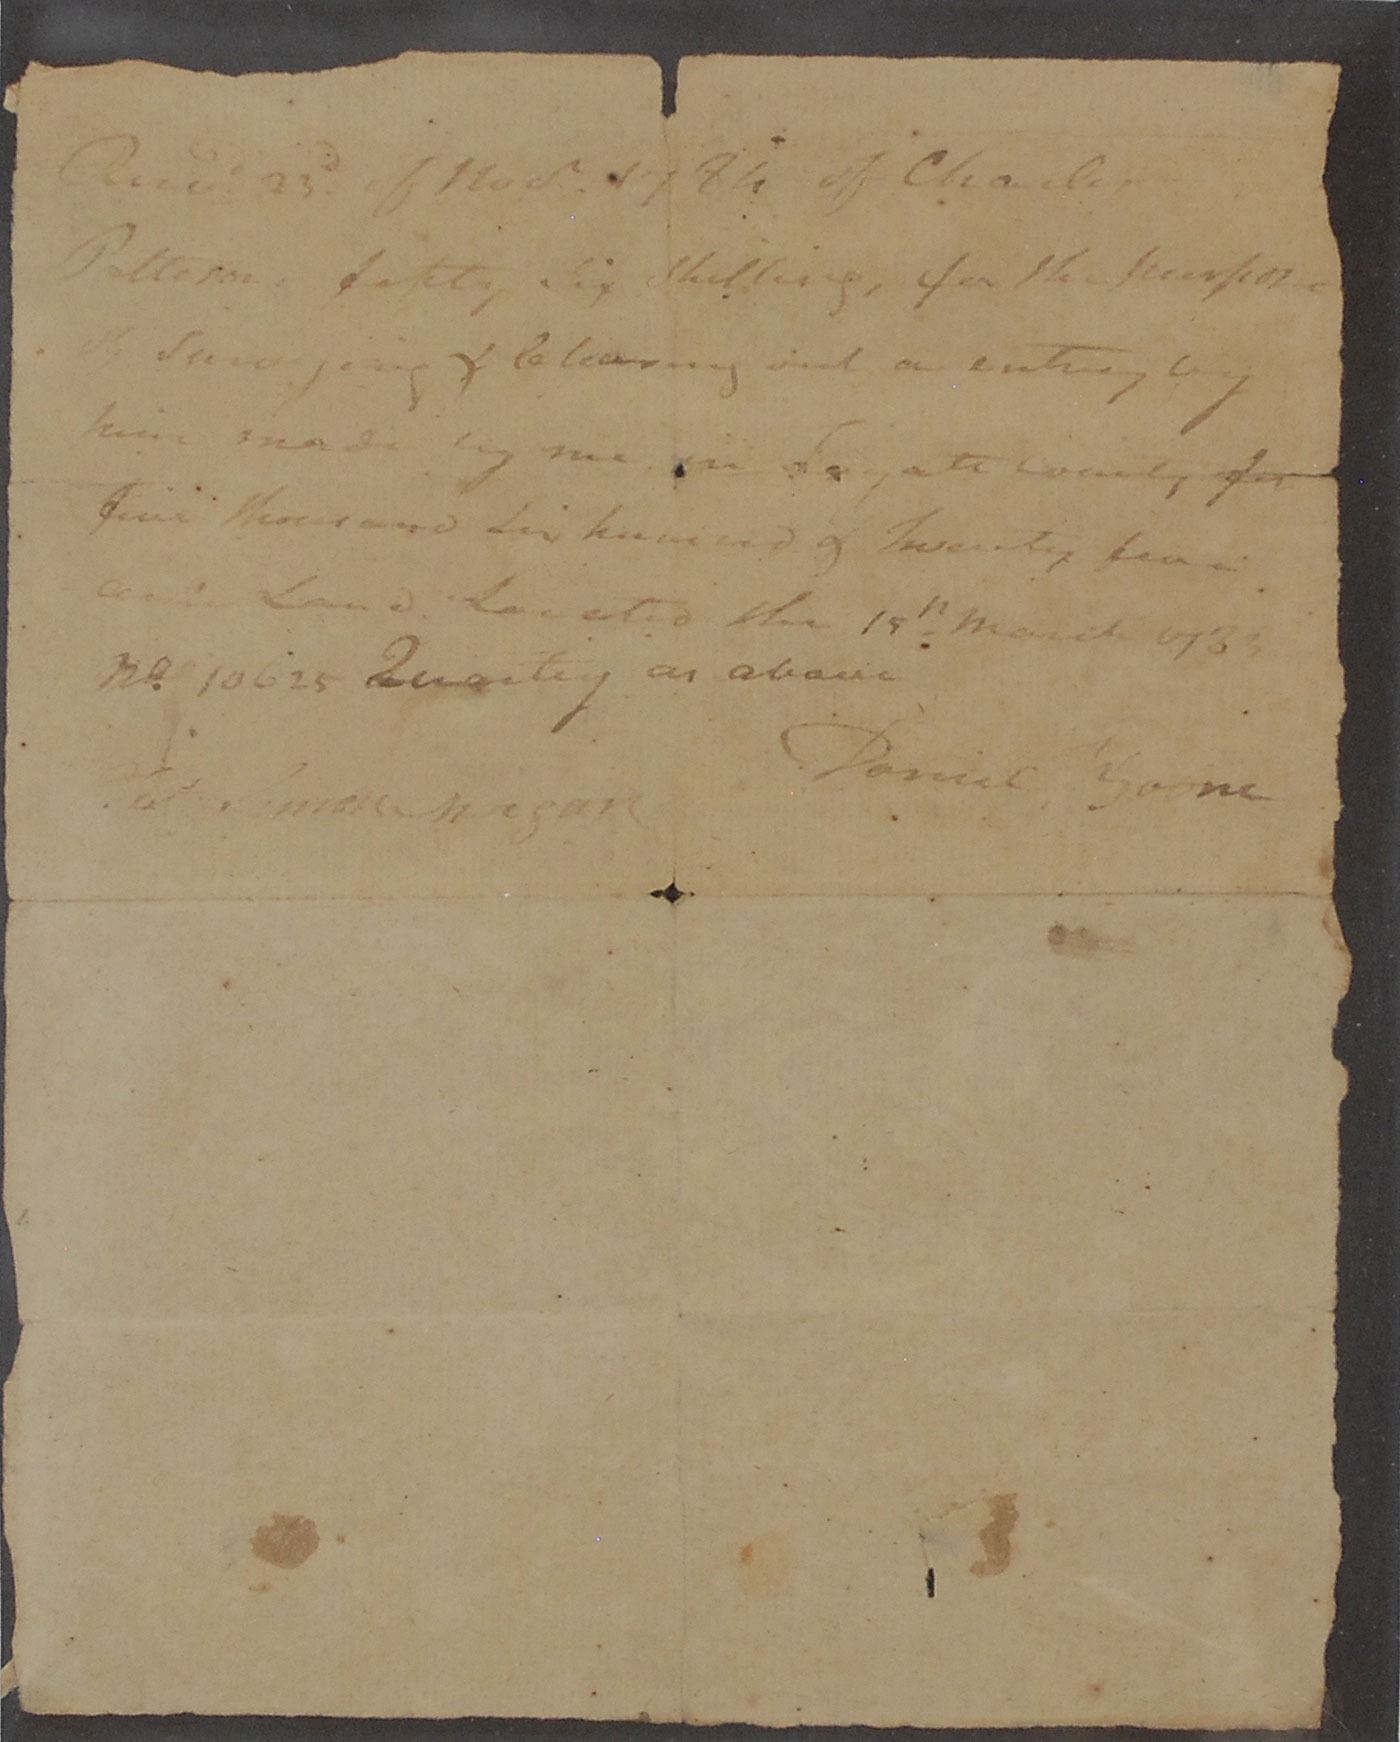 Recd. 23d. of Novr. 1784 of Charles
Patterson, fifty Six Shillings, for the Purpose
of Surveying & Clearing out a entery by
him made by me in Fayatt County for
five thousand Six hundred & twenty five
acres Land Located the 15th March 1783
No. 10625 Quantity as above
Daniel Boone
Test Simon Morgan